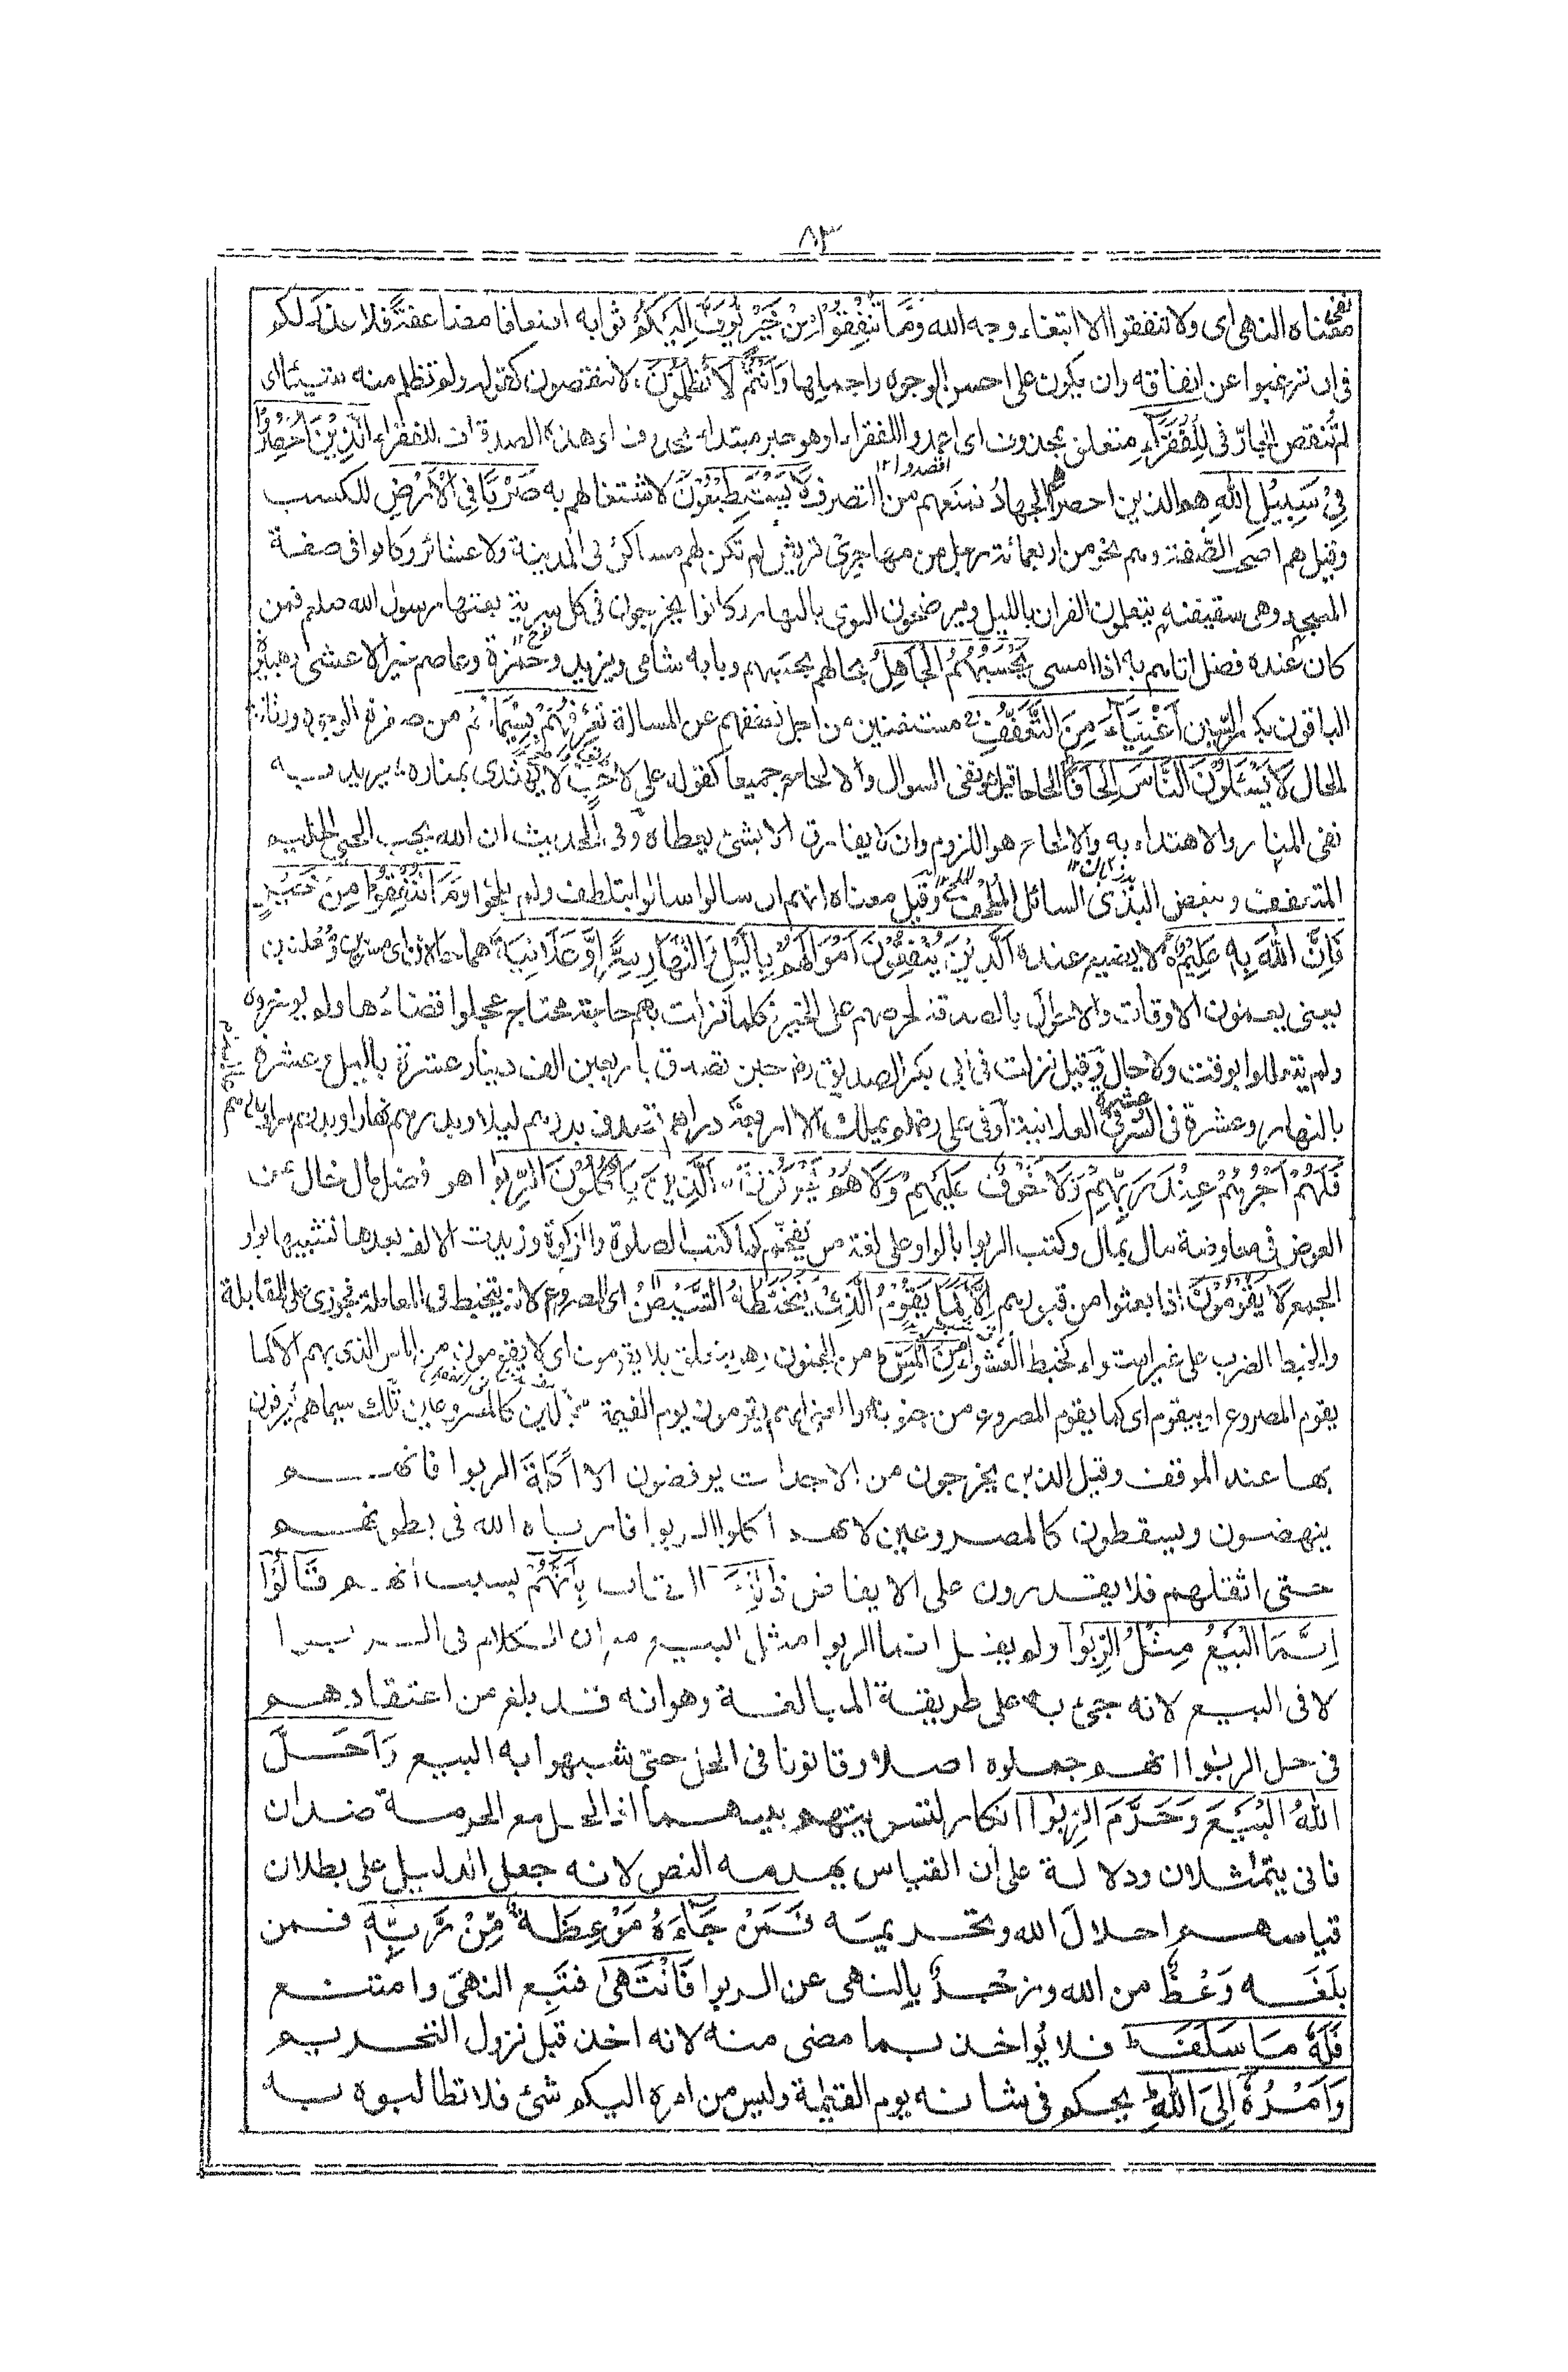 ٨٣
معناه النهى اى ولا تنفقوا الا ابتغاء وجه الله وَمَا تُنْفِقُوْا مِنْ خَيْرٍ يُّوَفَّ اِلَيْكُمْ ثوابه اضعافا مضاعفة فلا عذر لكم
فى ان ترغبوا عن انفاقه وان يكون على احسن الوجوه واجملها وَاَنْتُمْ لَا تُظْلَمُوْنَ لا تنقصون كقوله ولم تظلم منه شيئا اى
لم تنقص الجارّ فى لِلْفُقَرَآءِ متعلق بمحذوف اى اعمدوا للفقراء او هو خبر مبتداء محذوف اى هذه الصدقات للفقراء الَّذِيْنَ اُحْصِرُوْا
اقصدوا ١٢
فِىْ سَبِيْلِ اللّٰهِ هم الذين احصرهم الجهاد فمنعهم من التصرف لَا يَسْتَطِيْعُوْنَ لاشتغالهم به ضَرْبًا فِى الْاَرْضِ للكسب
وقيل هم اصحب الصّفة وهم نحو من اربعمائة رجل من مهاجرى قريش لم تكن لهم مساكن فى المدينة ولا عشائر وكانوا فى صفة
المسجد وهى سقيفته يتعلمون القران بالليل ويرضخون النوى بالنهار وكانوا يخرجون فى كل سرية بعثها رسول الله صلعم فمن
كان عنده فضل اتاهم به اذا امسى يَحْسَبُهُمُ الْجَاهِلُ بحالهم يحسبهم وبابه شامى ويزيد وحمزة وعاصم غير الاعشى وهبيرة
الباقون بكسر السين اَغْنِيَآءَ مِنَ التَّعَفُّفِ مستغنين من اجل تعففهم عن المسالة تَعْرِفُهُمْ بِسِيْمٰهُمْ من صفرة الوجوه ورثاثة
الحال لَا يَسْئَلُوْنَ النَّاسَ اِلْحَافًا الحاحا قيل هو نفى السوال والالحاح جميعا كقوله على لاحب لا يهتدى بمناره يريد به
نفى المنار والاهتداء به والالحاح هو اللزوم وان لا يفارق الا بشئ يعطاه وفى الحديث ان الله يحب الحيى الحليم
المتعفف ويبغض البذى السائل الملحف وقيل معناه انهم ان سالوا سالوا بتلطف ولم يلحوا وَمَا تُنْفِقُوْا مِنْ خَيْرٍ
فَاِنَّ اللّٰهَ بِهٖ عَلِيْمٌ لا يضيع عنده اَلَّذِيْنَ يُنْفِقُوْنَ اَمْوَالَهُمْ بِالَّيْلِ وَالنَّهَارِ سِرًّا وَّعَلَانِيَةً هما حالان اى مسرين ومعلنين
يعنى يعمون الاوقات والاحوال بالصدقة لحرصهم على الخير فكلما نزلت بهم حاجة محتاج عجلوا قضاءها ولم يوخروه
ولم يتعللوا بوقت ولا حال وقيل نزلت فى ابى بكر الصديق رض حين تصدق باربعين الف دينار عشرة بالليل وعشرة
بالنهار وعشرة فى السر وعشرة فى العلانية او فى على رض لم يملك الا اربعة دراهم تصدق بدرهم ليلا وبدرهم نهارا وبدرهم سرا وبدرهم
فَلَهُمْ اَجْرُهُمْ عِنْدَ رَبِّهِمْ وَلَا خَوْفٌ عَلَيْهِمْ وَلَا هُمْ يَحْزَنُوْنَ اَلَّذِيْنَ يَاْكُلُوْنَ الرِّبٰوا هو فضل مال خال عن
العوض فى معاوضة مال بمال وكتب الربوا بالواو على لغة من يفخم كما كتب الصلوة والزكوة وزيدت الالف بعدها تشبيها بواو
الجمع لَا يَقُوْمُوْنَ اذا بعثوا من قبورهم اِلَّا كَمَا يَقُوْمُ الَّذِىْ يَتَخَبَّطُهُ الشَّيْطٰنُ اى المصروع لانه يتخبط فى المعاملة فجوزى على المقابلة
والخبط الضرب على غير استواء كخبط العشواء مِنَ الْمَسِّ من الجنون وهو يتعلق بلا يقومون اى لا يقومون من المس الذى بهم الا كما
يقوم المصروع او بيقوم اى كما يقوم المصروع من جنونه والمعنى انهم يقومون يوم القيمة مخبلين كالمصروعين تلك سيماهم يعرفون
بها عند الموقف وقيل الذين يخرجون من الاجداث يوفضون الا اكلة الربوا فانهم
ينهضون ويسقطون كالمصروعين لانهم اكلوا الربوا فارباه الله فى بطونهم
حتى اثقلهم فلا يقدرون على الايفاض ذٰلِكَ العقاب بِاَنَّهُمْ بسبب انهم قَالُوْٓا
اِنَّمَا الْبَيْعُ مِثْلُ الرِّبٰوا ولم يقل انما الربوا مثل البيع مع ان الكلام فى الربوا
لا فى البيع لانه جئ به على طريقة المبالغة وهو انه قد بلغ من اعتقادهم
فى حل الربوا انهم جعلوه اصلا وقانونا فى الحل حتى شبهوا به البيع وَاَحَلَّ
اللّٰهُ الْبَيْعَ وَحَرَّمَ الرِّبٰوا انكار لتسويتهم بينهما اذ الحل مع الحرمة ضدان
فانى يتماثلان ودلالة على ان القياس يهدمه النص لانه جعل الدليل على بطلان
قياسهم احلال الله وتحريمه فَمَنْ جَآءَهٗ مَوْعِظَةٌ مِّنْ رَّبِّهٖ فمن
بلغه وعظ من الله وزجر بالنهى عن الربوا فَانْتَهٰى فتبع النهى وامتنع
فَلَهٗ مَا سَلَفَ ط فلا يؤاخذ بما مضى منه لانه اخذ قبل نزول التحريم
وَاَمْرُهٗٓ اِلَى اللّٰهِ ط يحكم فى شانه يوم القيمة وليس من امره اليكم شئ فلا تطالبوه به